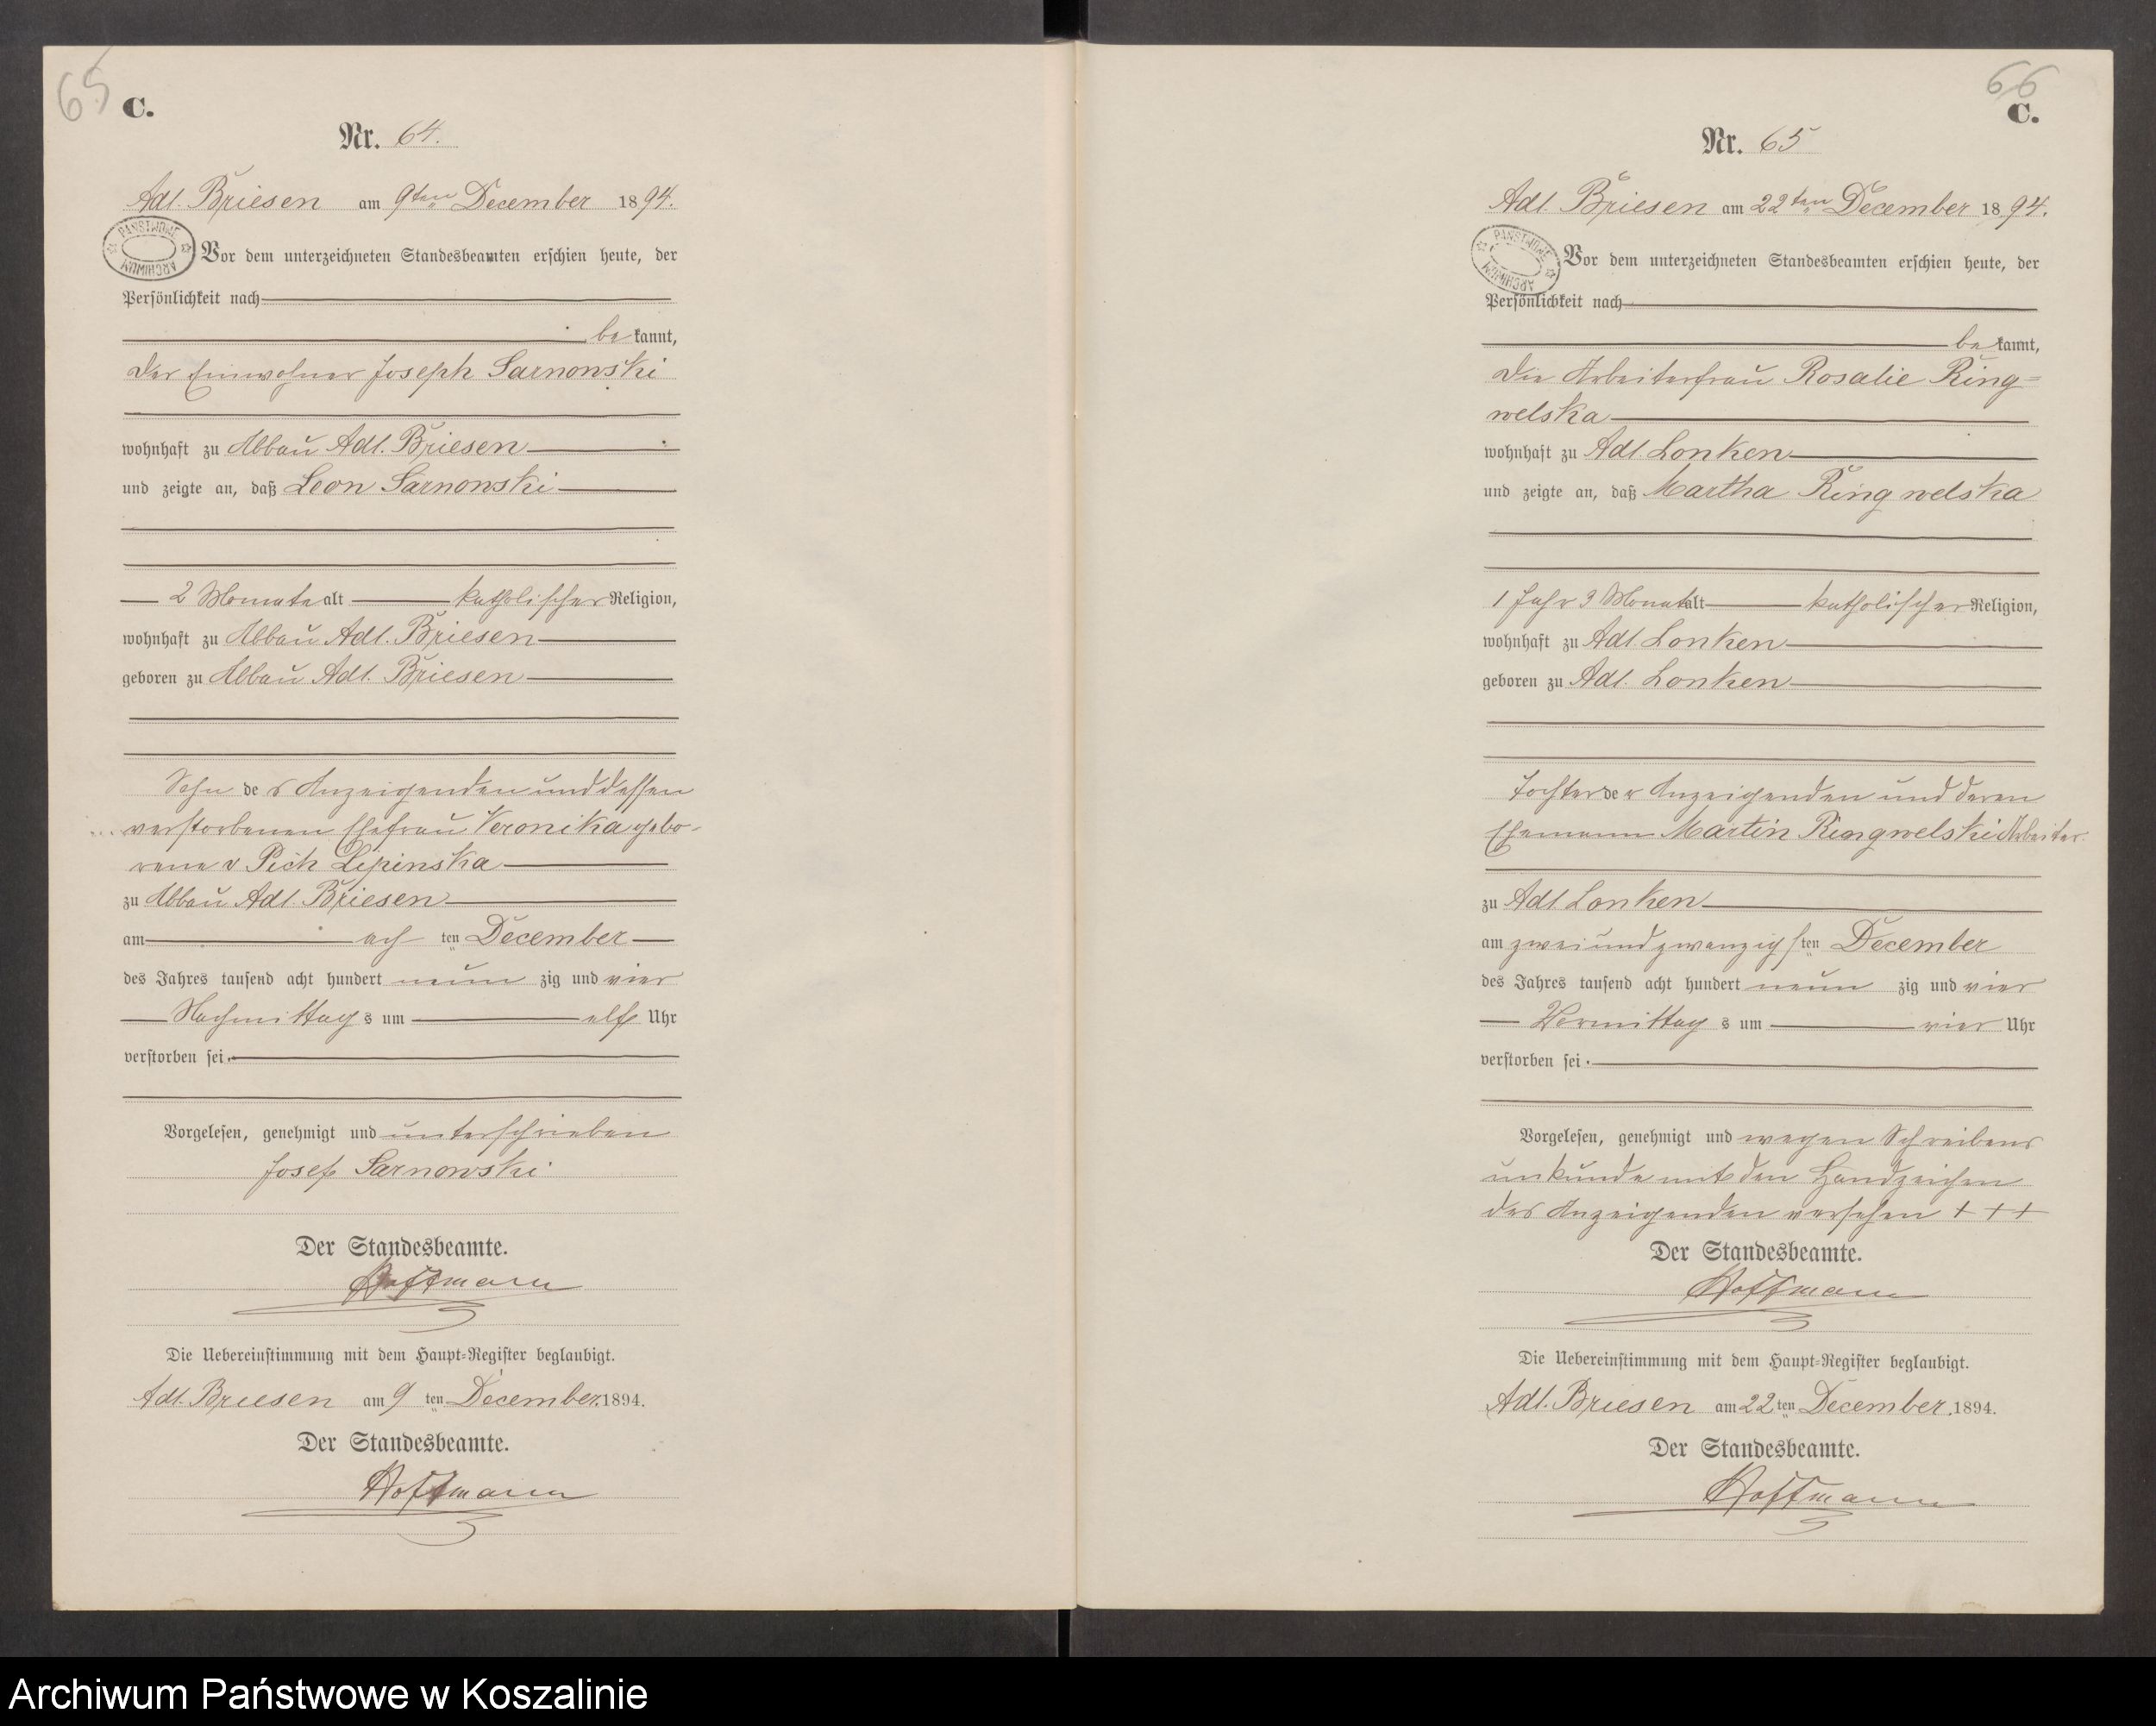 65
C.
Nr. 64.
Adl. Briesen am 9ten December 1894.
PAŃSTWOWE ARCHIWUM
Vor dem unterzeichneten Standesbeamten erschien heute, der
Persönlichkeit nach
bekannt,
der Einwohner Joseph Sarnowski
wohnhaft zu Abbau Adl. Briesen
und zeigte an, daß Leon Sarnowski
2 Monate alt katholischer Religion,
wohnhaft zu Abbau Adl. Briesen
geboren zu Abbau Adl. Briesen
Sohn des Anzeigenden und dessen
verstorbenen Ehefrau Veronika gebo-
rene v Pich Lipinska
zu Abbau Adl. Briesen
am achten December
des Jahres tausend acht hundert neunzig und vier
Nachmittags um elf Uhr
verstorben sei.
Vorgelesen, genehmigt und unterschrieben
Josef Sarnowski
Der Standesbeamte.
Hoffmann
Die Uebereinstimmung mit dem Haupt-Register beglaubigt.
Adl. Briesen am 9ten December 1894.
Der Standesbeamte.
Hoffmann
66
C.
Nr. 65
Adl. Briesen am 22ten December 1894.
PAŃSTWOWE ARCHIWUM
Vor dem unterzeichneten Standesbeamten erschien heute, der
Persönlichkeit nach
bekannt,
die Arbeiterfrau Rosalie Ring=
welska
wohnhaft zu Adl. Lonken
und zeigte an, daß Martha Ringwelska
1 Jahr 3 Monate alt katholischer Religion,
wohnhaft zu Adl. Lonken
geboren zu Adl. Lonken
Tochter der Anzeigenden und deren
Ehemann Martin Ringwelski Arbeiter
zu Adl. Lonken
am zweiundzwanzigsten December
des Jahres tausend acht hundert neunzig und vier
Vormittags um vier Uhr
verstorben sei.
Vorgelesen, genehmigt und wegen Schreibens
unkunde mit den Handzeichen
des Anzeigenden versehen + + +
Der Standesbeamte.
Hoffmann
Die Uebereinstimmung mit dem Haupt-Register beglaubigt.
Adl. Briesen am 22ten December 1894.
Der Standesbeamte.
Hoffmann
Archiwum Państwowe w Koszalinie